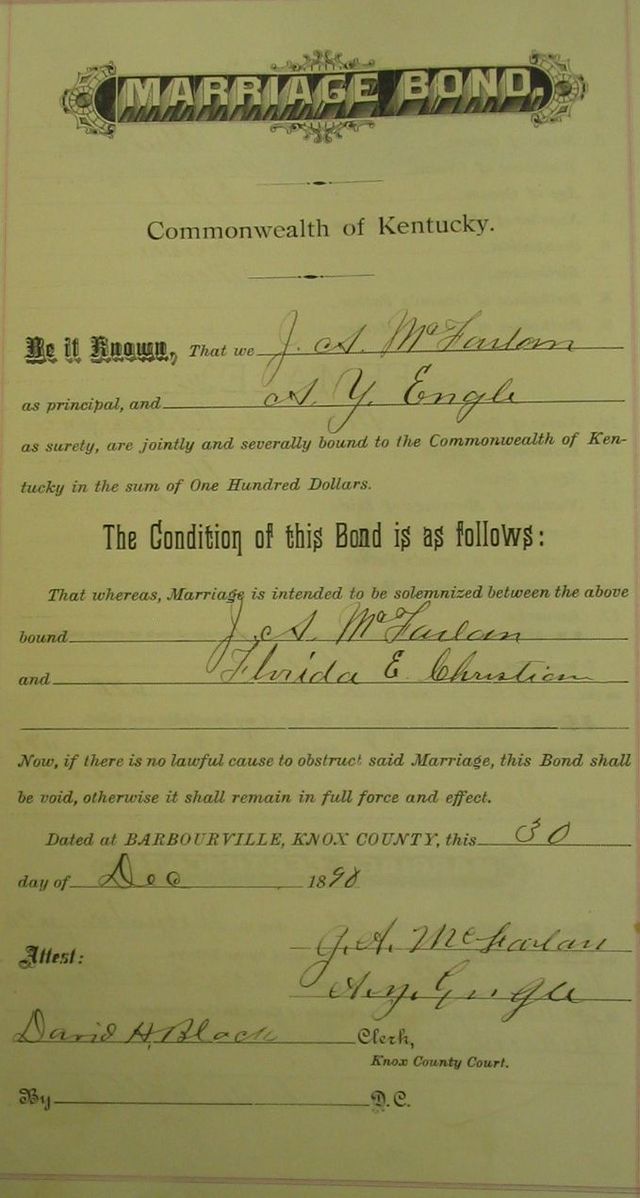 MARRIAGE BOND.
Commonwealth of Kentucky.
Be it Known, That we J. A. McFarlan
as principal, and A. Y. Engle
as surety, are jointly and severally bound to the Commonwealth of Ken-
tucky in the sum of One Hundred Dollars.
The Condition of this Bond is as follows:
That whereas, Marriage is intended to be solemnized between the above
bound J. A. McFarlan
and Florida E. Christian
Now, if there is no lawful cause to obstruct said Marriage, this Bond shall
be void, otherwise it shall remain in full force and effect.
Dated at BARBOURVILLE, KNOX COUNTY, this 30
day of Dec 1898
Attest: J. A. McFarlan
A. Y. Engle
David H. Black Clerk,
Knox County Court.
By D. C.